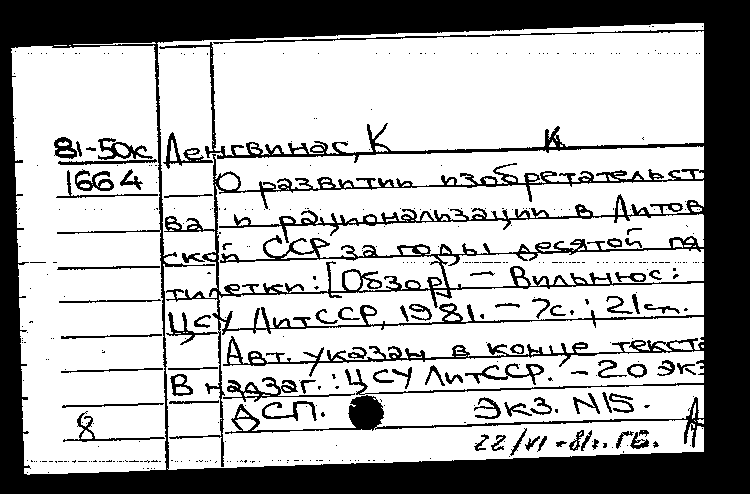 81-50к Ленгвинас, К К
1664 О развитии изобретательст
ва и рационализации в Литов
ской ССР за годы десятой пя
тилетки: [Обзор]. - Вильнюс:
ЦСУ ЛитССР, 1981. - 7с.; 21см.
Авт. указан в конце текста
В надзаг.: ЦСУ ЛитССР. - 20 экз
ДСП. Экз. N15.
8 22/VI-81г. ГБ. А